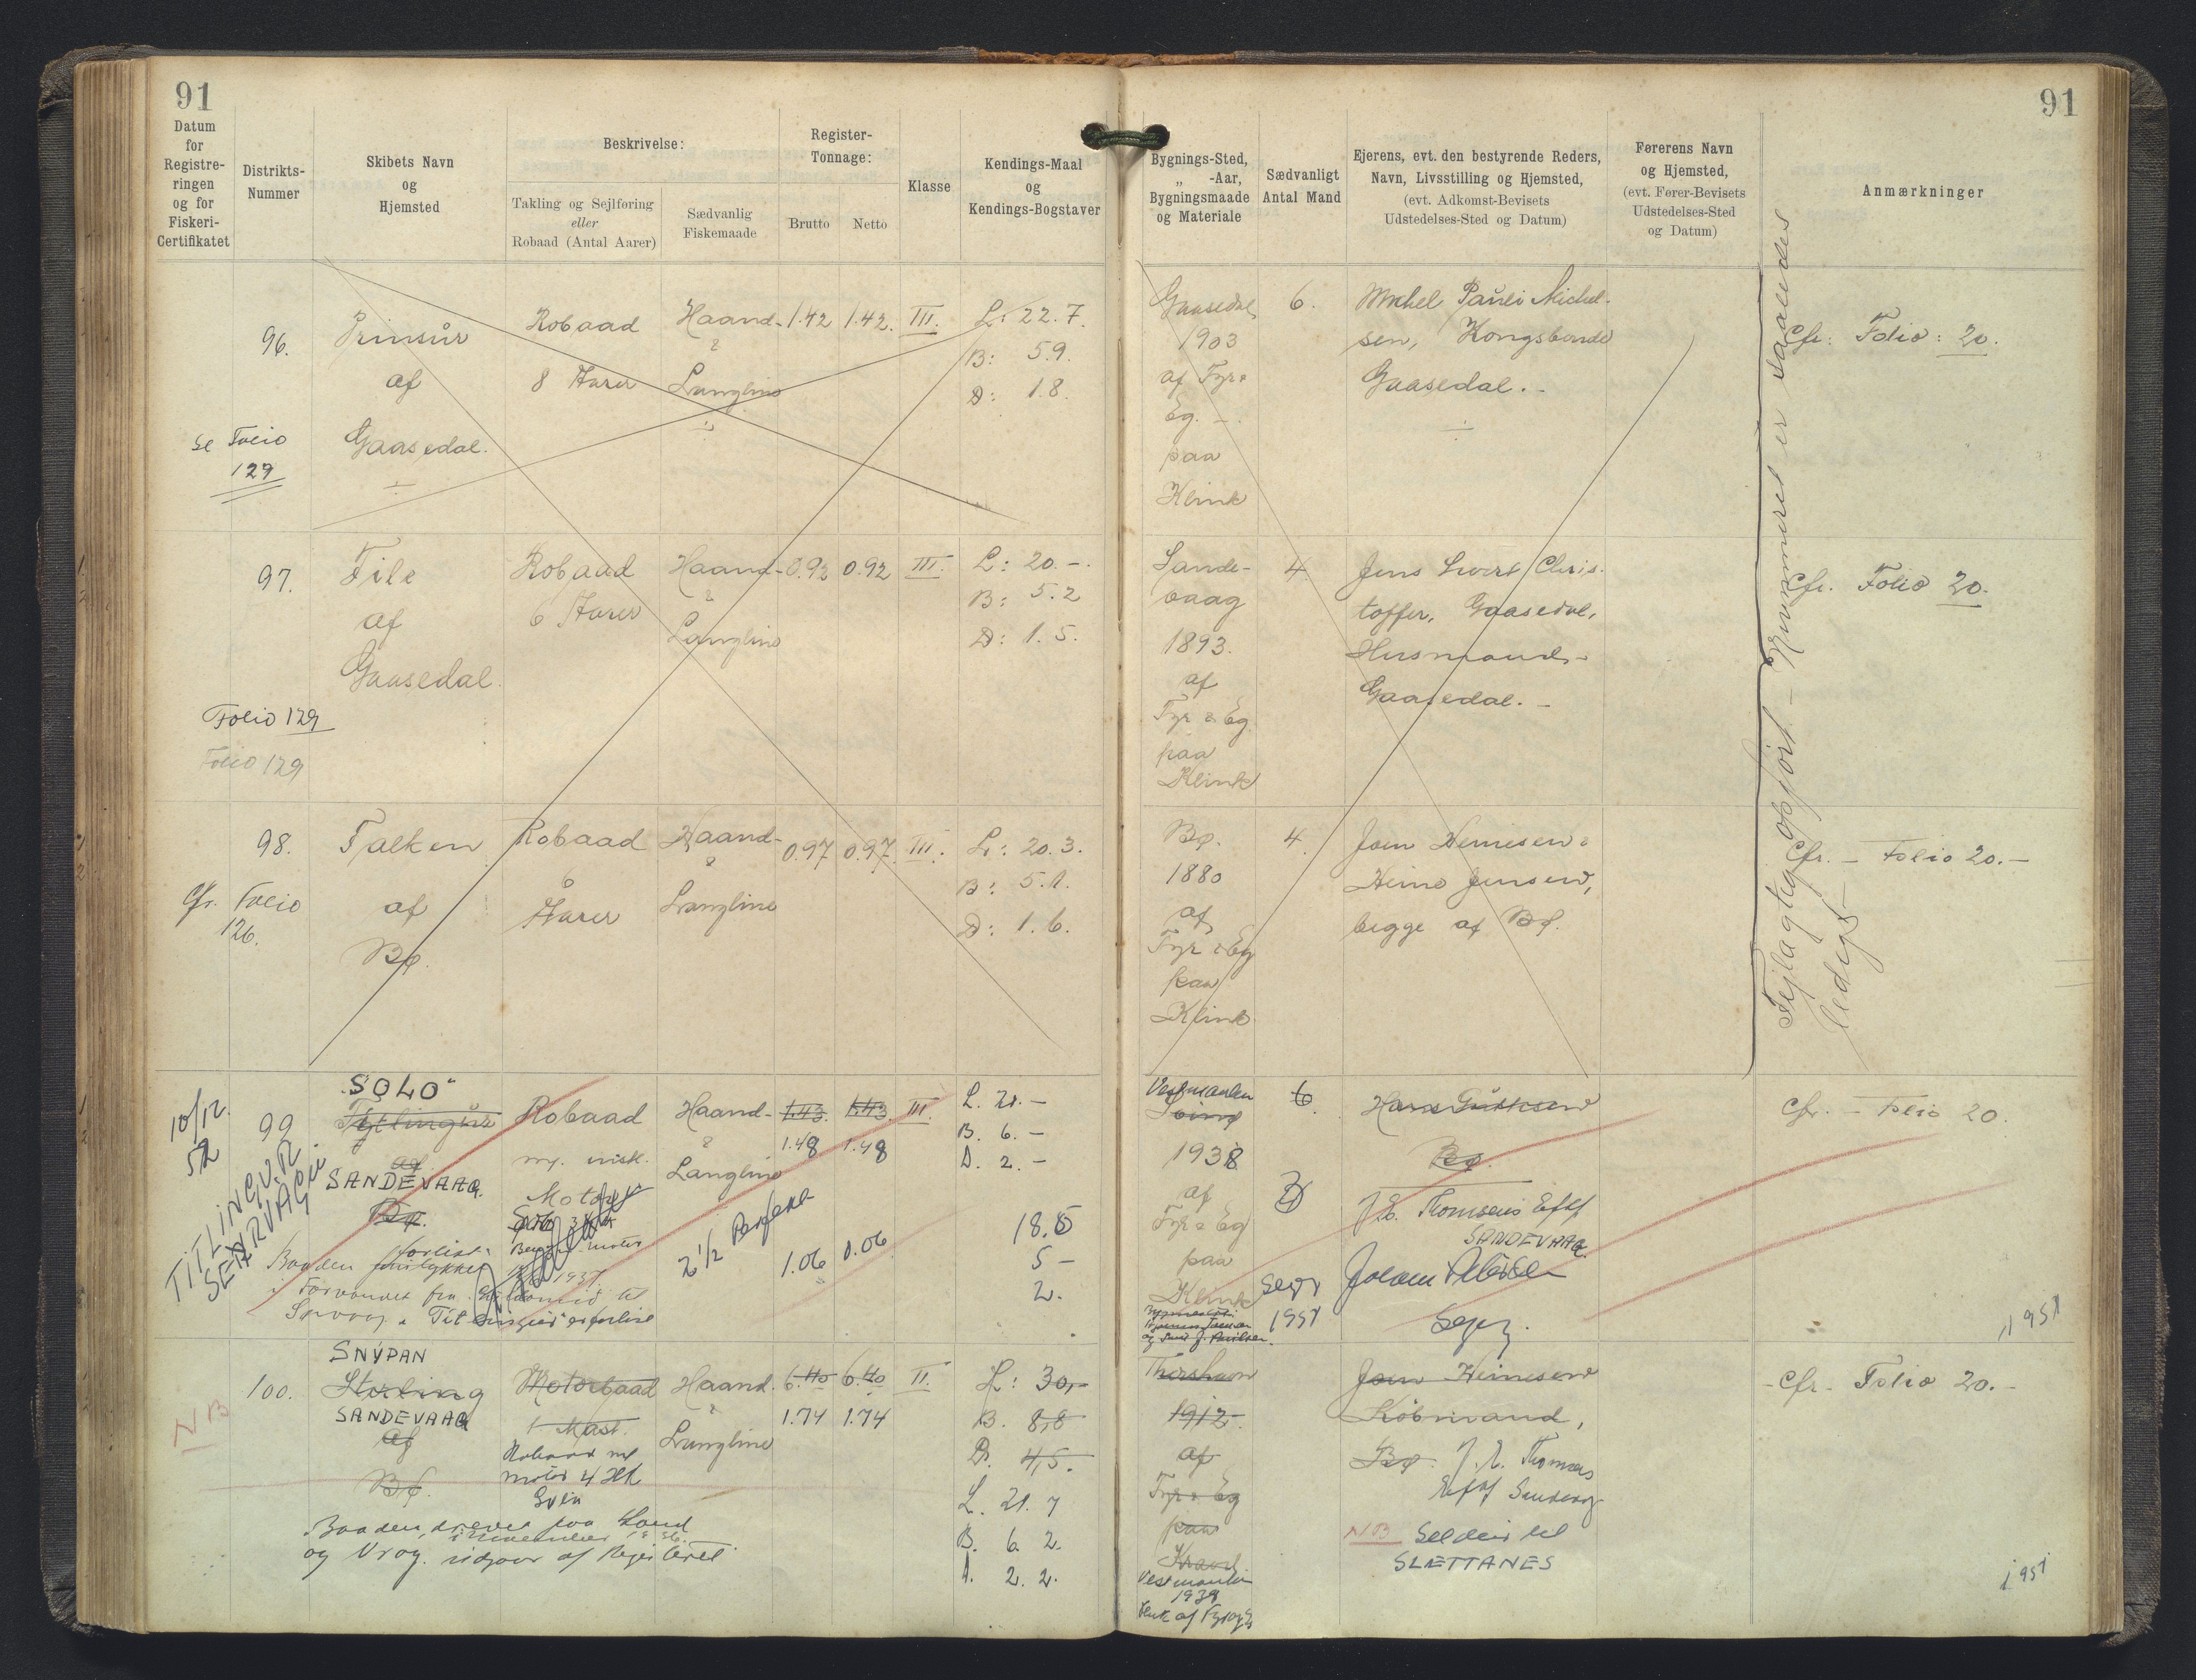 91
91
Datum
for
Registre-
ringen
og for
Fiskeri-
Certifikatet
Distrikts-
Nummer
Skibets Navn
og
Hjemsted
Beskrivelse:
Takling og Sejlføring
eller
Robaad (Antal Aarer)
Sædvanlig
Fiskemaade
Register-
Tonnage:
Brutto
Netto
Klasse
Kendings-Maal
og
Kendings-Bogstaver
Bygnings-Sted,
„ -Aar,
Bygningsmaade
og Materiale
Sædvanligt
Antal Mand
Ejerens, evt. den bestyrende Reders,
Navn, Livsstilling og Hjemsted,
(evt. Adkomst-Bevisets
Udstedelses-Sted og Datum)
Førerens Navn
og Hjemsted,
(evt. Fører-Bevisets
Udstedelses-Sted
og Datum)
Anmærkninger
96.
Se Folio
129
Prinsur
af
Gaasedal.
Robaad
8 Aarer
Haand-
&
Langline
1.42
1.42.
III.
L: 22.7.
B: 5.9.
D: 1.8.
Gaasedal
1903
af Fyr &
Eg.
paa
Klink
6.
Michel Pauli Michel-
sen, Kongsbonde
Gaasedal.
Cfr. Folio: 20.
97.
Folio 129
Folio 129
File
af
Gaasedal.
Robaad
6 Aarer
Haand-
&
Langline
0.92
0.92
III.
L: 20.-.
B: 5.2
D: 1.5.
Sande-
vaag
1893.
af
Fyr & Eg
paa
Klink
4
Jens Christoffer, Gaasedal,
Husmand
Gaasedal.
Cfr. Folio 20.
98.
Cfr. Folio
126.
Falken
af
Bø.
Robaad
6
Aarer
Haand-
&
Langline
0.97
0.97.
III.
L: 20.3.
B: 5.1.
D: 1.6.
Bø.
1880
af
Fyr & Eg
paa
Klink
4.
Joen Heinesen &
Heine Jensen,
begge af Bø.
Cfr. - Folio 20.-
Fejlagtig opført - Nummeret er saaledes
ledigt
10/12.
52
TITLINGUR
SERVÁGI
99
"SOLO"
Tytlingur
af
SANDEVAAG.
Bø.
Robaad
Motor
1937.
Haand-
&
Langline
1.43.
1.43
1.48
1.48
III.
2 1/2
1.06
0.06
L. 21.-
B. 6.-
D. 2.-
18.5
5-
2.
Baaden forlist
Vestmanhn
1938
af
Fyr & Eg
paa
Klink
6.
1951
Bø.
J. E. Thomsens Eftf
SANDEVAAG.
Cfr. - Folio 20.
1951
NB
100.
SNÍPAN
Sterling
SANDEVAAG
af
Bø.
Motorbaad
1 Mast.
Robaad m/
motor 4 Hk
Haand.
&
Langline
6.40
6.40
1.74
1.74
II.
L: 30,-
B. 8,8
D. 4,5.
L. 21. 7
B. 6. 2.
D. 2. 2.
Baaden drevet paa Land
og Vrag. udgaar af Registeret
Thorshavn
1912.
af
Fyr & Eg
paa
Kravel
Vestmanhn
Joen Heinesen
Købmand,
Bø. J. E. Thomsens
Eftf Sandevag
NB Seldur til
SLÆTTANES
- Cfr. Folio 20.-
1951